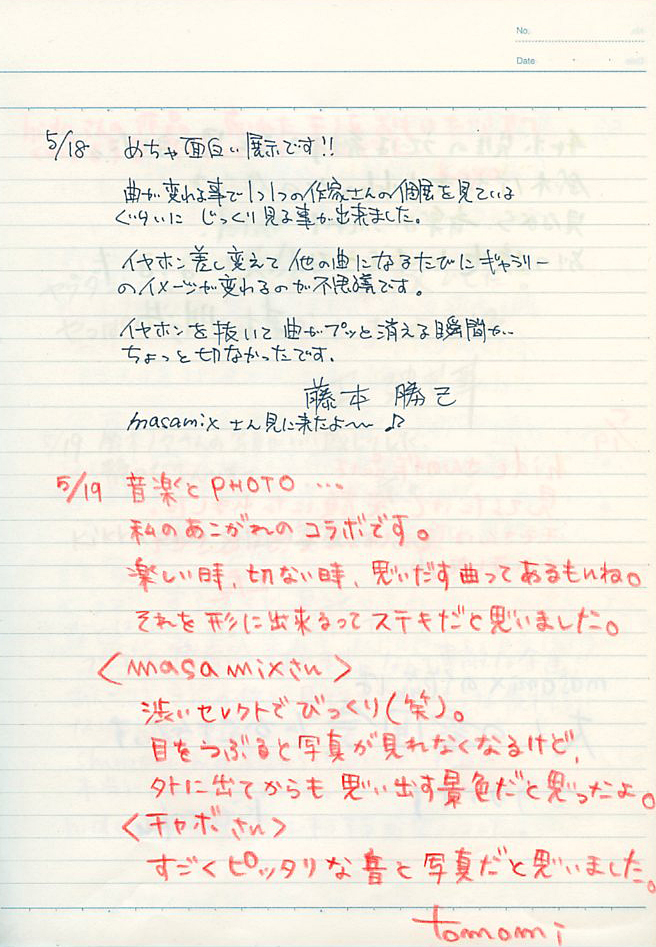 No.
Date
5/18 めちゃ面白い展示です!!
曲が変れる事で1つ1つの作家さんの個展を見ている
ぐらいに じっくり見る事が出来ました。
イヤホン差し変えて 他の曲になるたびにギャラリー
のイメージが変れるのが不思議です。
イヤホンを抜いて曲がプッと消える瞬間が
ちょっと切なかったです.
藤本 勝己
masamix さん見に来たよ〜♪
5/19 音楽とPHOTO ...
私のあこがれのコラボです。
楽しい時,切ない時,思いだす曲ってあるもいね。
それを形に出来るってステキだと思いました。
<masamixさん>
渋いセレクトでびっくり(笑)。
目をつぶると写真が見れなくなるけど,
外に出てからも思い出す景色だと思ったよ。
<チャボさん>
すごくピッタリな音と写真だと思いました。
tomomi